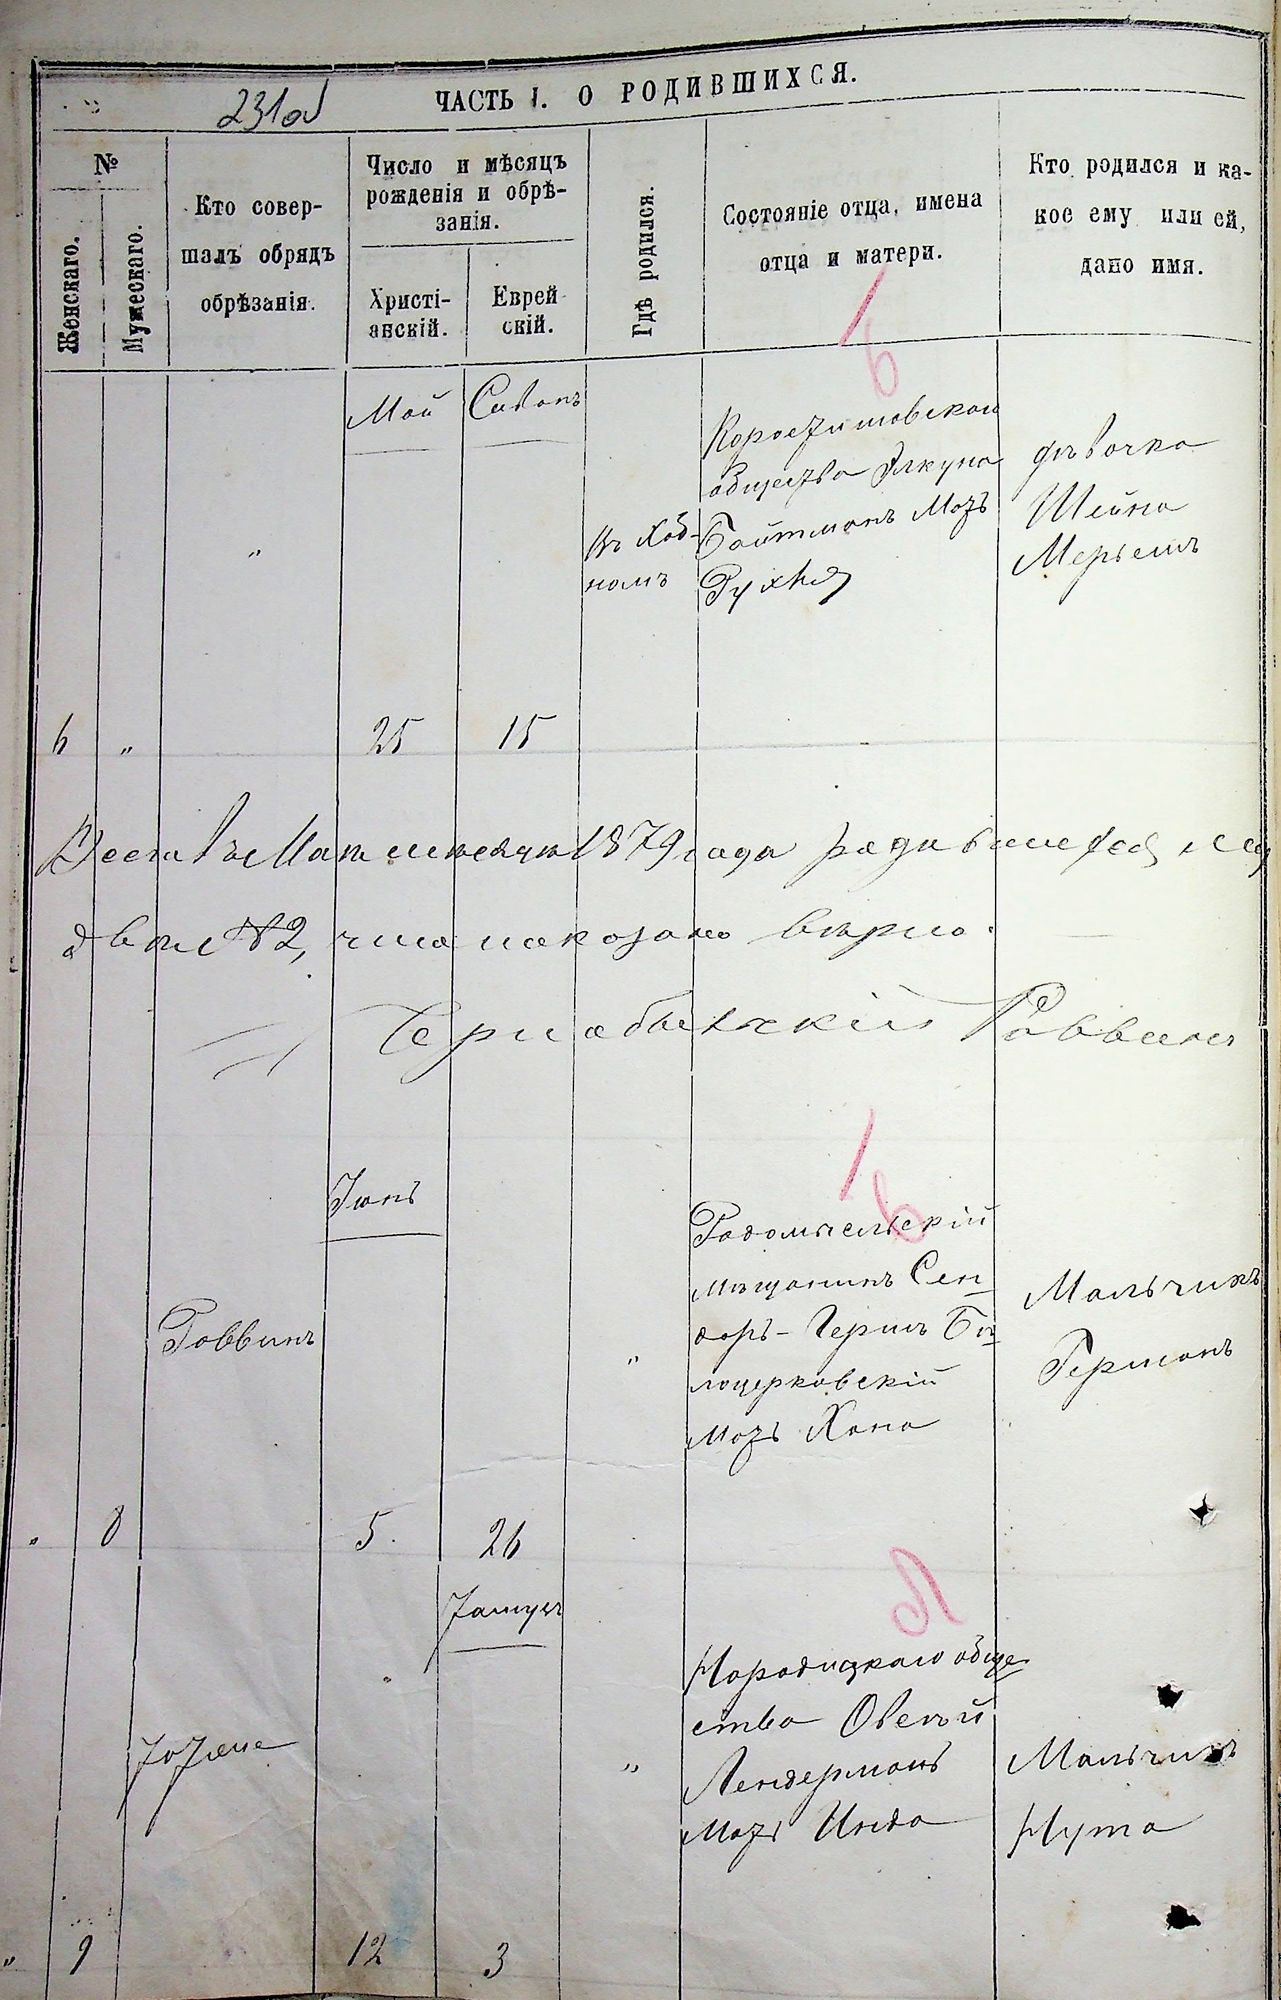 231об
ЧАСТЬ I. О РОДИВШИХСЯ.
№
Женскаго.
Мужескаго.
Кто совер-
шалъ обрядъ
обрѣзанія.
Число и мѣсяцъ
рожденія и обрѣ-
занія.
Христі-
анскій.
Еврей
скій.
Гдѣ родился.
Состояніе отца, имена
отца и матери.
Кто родился и ка-
кое ему или ей,
дано имя.
6
"
"
Май
25
Сиванъ
15
въ Хаб-
номъ
Коростишовскаго
общества Элкуна
Байтманъ Мать
Рухля
дѣвочка
Шейна
Мерьемъ
Всего въ Маѣ мѣсяцѣ 1879 года родившихся
двѣ № 2, что показано вѣрно.
Чернобыльскій Раввинъ
"
8
Раввинъ
Іюнь
5.
26
"
Радомысльскій
мѣщанинъ Сен-
доръ-Гершъ Бѣ-
лоцерковскій
мать Хана
Мальчикъ
Германъ
"
9
Тотже
"
12
Тамузъ
3
"
Народицкаго обще-
ства Овсѣй
Лендерманъ
мать Инда
Мальчикъ
Нута